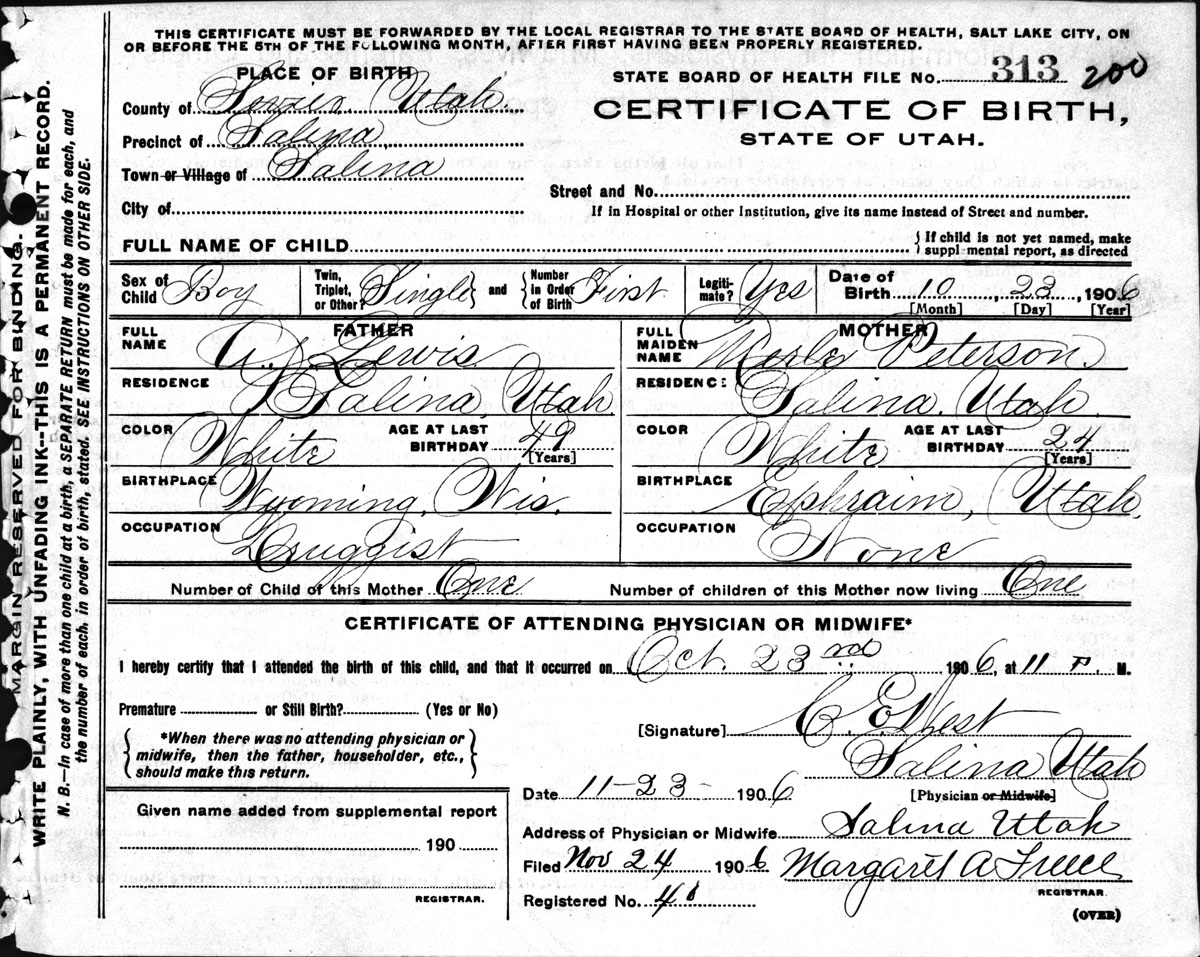 THIS CERTIFICATE MUST BE FORWARDED BY THE LOCAL REGISTRAR TO THE STATE BOARD OF HEALTH, SALT LAKE CITY, ON
OR BEFORE THE 5TH OF THE FOLLOWING MONTH, AFTER FIRST HAVING BEEN PROPERLY REGISTERED.
PLACE OF BIRTH
County of Sevier Utah.
Precinct of Salina,
Town or Village of Salina
City of
STATE BOARD OF HEALTH FILE NO. 313 200
CERTIFICATE OF BIRTH,
STATE OF UTAH.
Street and No.
If in Hospital or other Institution, give its name instead of Street and number.
FULL NAME OF CHILD
{ If child is not yet named, make
supplemental report, as directed
Sex of Child Boy
Twin, Triplet, or Other? Single and
Number in Order of Birth First
Legitimate? Yes
Date of Birth 10, 23, 1906
[Month] [Day] [Year]
FATHER
FULL NAME A. J. Lewis
RESIDENCE Salina, Utah
COLOR White AGE AT LAST BIRTHDAY 49
[Years]
BIRTHPLACE Wyoming, Wis.
OCCUPATION Druggist
MOTHER
FULL MAIDEN NAME Merle Peterson.
RESIDENCE Salina, Utah
COLOR White AGE AT LAST BIRTHDAY 24
[Years]
BIRTHPLACE Ephraim, Utah,
OCCUPATION None
Number of Child of this Mother One Number of children of this Mother now living One
CERTIFICATE OF ATTENDING PHYSICIAN OR MIDWIFE*
I hereby certify that I attended the birth of this child, and that it occurred on Oct. 23rd 1906, at 11 P. M.
Premature or Still Birth? (Yes or No)
*When there was no attending physician or
midwife, then the father, householder, etc.,
should make this return.
[Signature] C. E. West
Salina Utah
Date 11-23- 1906.
[Physician or Midwife]
Address of Physician or Midwife Salina Utah
Filed Nov 24 1906 Margaret A Freece
REGISTRAR.
Registered No. 40
(OVER)
Given name added from supplemental report
190
REGISTRAR.
MARGIN RESERVED FOR BINDING.
WRITE PLAINLY, WITH UNFADING INK--THIS IS A PERMANENT RECORD.
N. B.—In case of more than one child at a birth, a SEPARATE RETURN must be made for each, and
the number of each, in order of birth, stated. SEE INSTRUCTIONS ON OTHER SIDE.